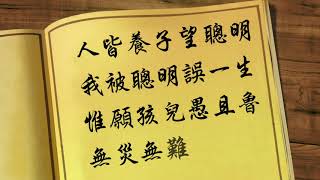 人皆養子望聰明
我被聰明誤一生
惟願孩兒愚且魯
無災無難